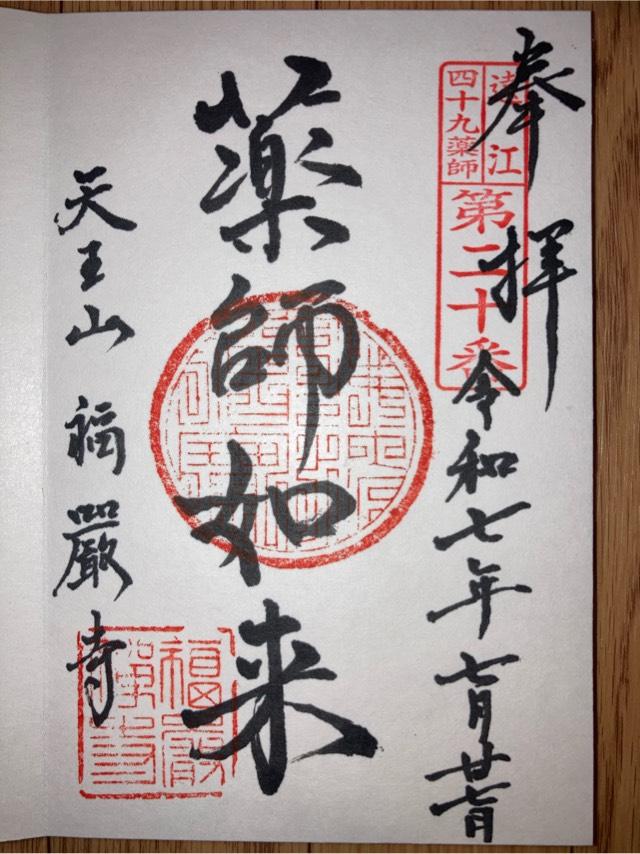 奉拝
遠江
四十九薬師
第二十番
令和七年七月廿七日
薬師如来
天王山 福嚴寺